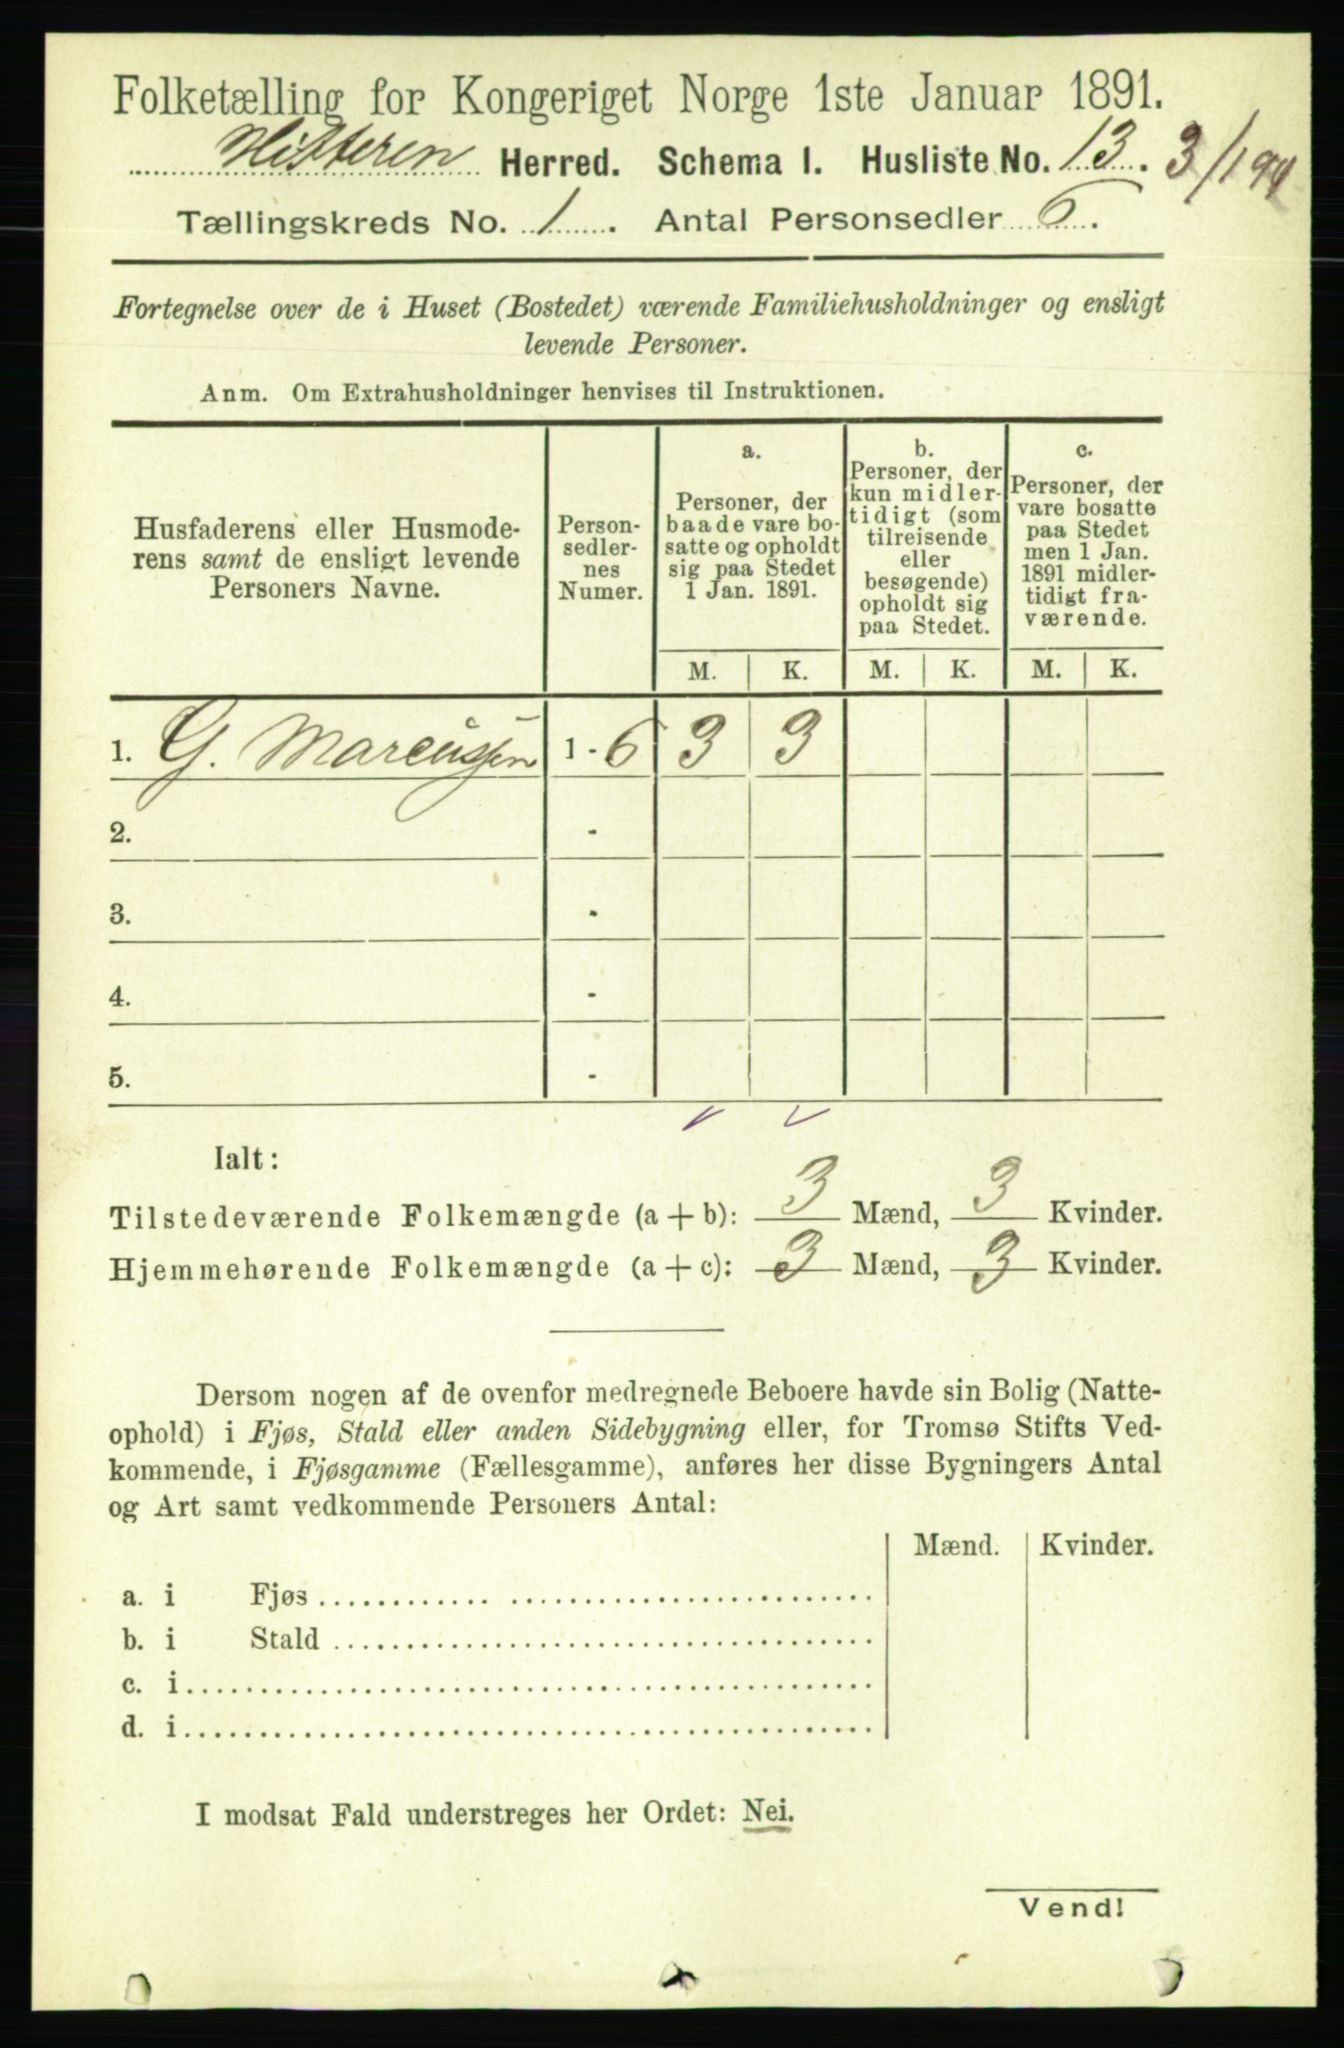 Folketælling for Kongeriget Norge 1ste Januar 1891.
Hitteren Herred. Schema 1. Husliste No. 13. 3/194
Tællingskreds No. 1. Antal Personsedler 6.
Fortegnelse over de i Huset (Bostedet) værende Familiehusholdninger og ensligt
levende Personer.
Anm. Om Extrahusholdninger henvises til Instruktionen.
Husfaderens eller Husmode-
rens samt de ensligt levende
Personers Navne.
Person-
sedler-
nes
Numer.
a.
Personer, der
baade vare bo-
satte og opholdt
sig paa Stedet
1 Jan. 1891.
b.
Personer, der
kun midler-
tidigt (som
tilreisende
eller
besøgende)
opholdt sig
paa Stedet.
c.
Personer, der
vare bosatte
paa Stedet
men 1 Jan.
1891 midler-
tidigt fra-
værende.
M. K. M. K. M. K.
1. G. Marcussen 1 - 6 3 3
2. -
3. -
4. -
5. -
Ialt:
Tilstedeværende Folkemængde (a + b): 3 Mænd, 3 Kvinder.
Hjemmehørende Folkemængde (a + c): 3 Mænd, 3 Kvinder.
Dersom nogen af de ovenfor medregnede Beboere havde sin Bolig (Natte-
ophold) i Fjøs, Stald eller anden Sidebygning eller, for Tromsø Stifts Ved-
kommende, i Fjøsgamme (Fællesgamme), anføres her disse Bygningers Antal
og Art samt vedkommende Personers Antal:
Mænd. Kvinder.
a. i Fjøs
b. i Stald
c. i
d. i
I modsat Fald understreges her Ordet: Nei.
Vend!